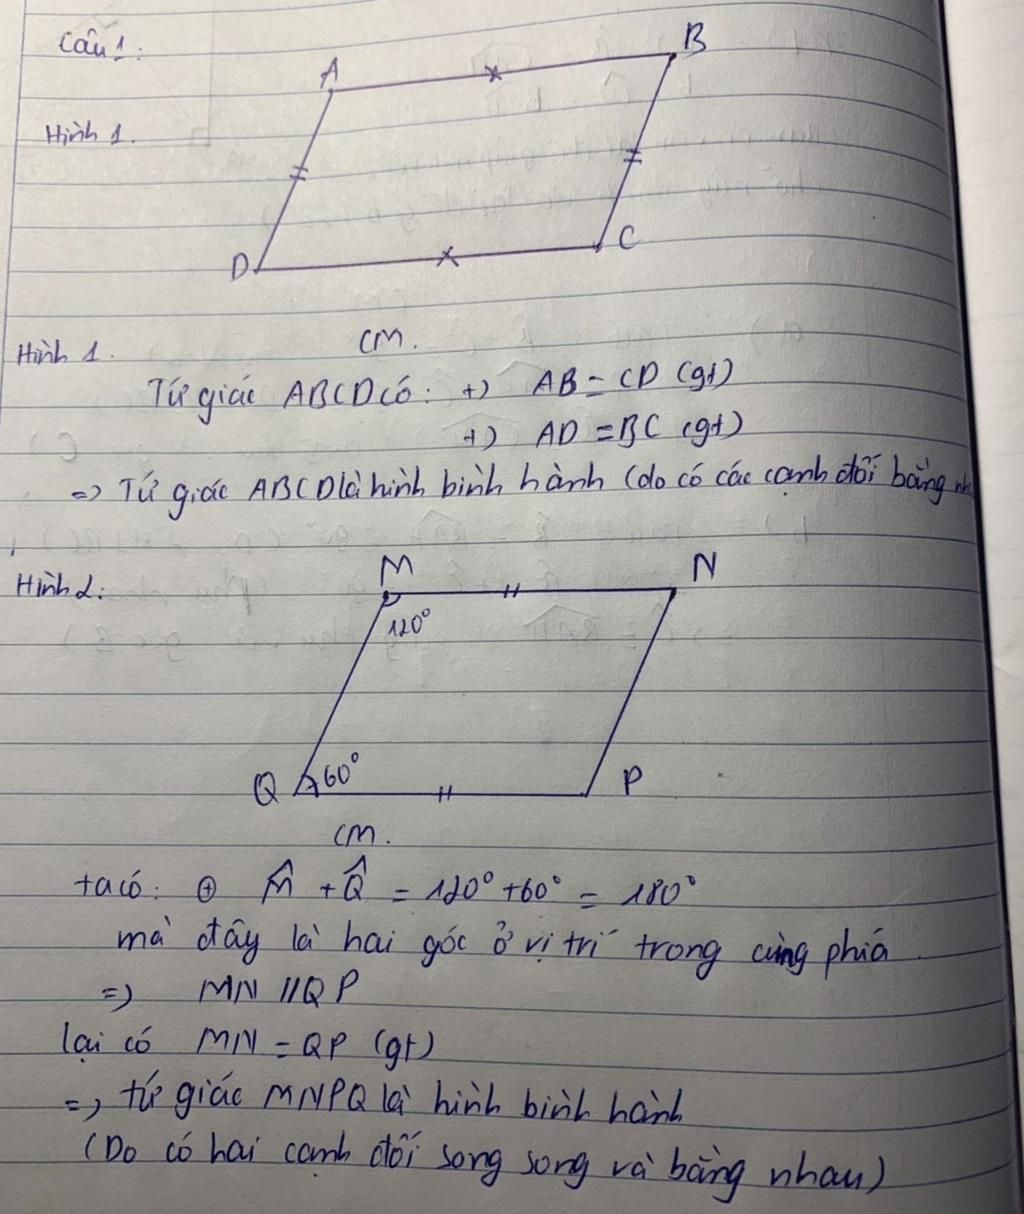 Câu 1:
A
B
Hình 1.
D
C
Hình 1.
CM.
Tứ giác ABCD có: +) AB = CD (gt)
+) AD = BC (gt)
=> Tứ giác ABCD là hình bình hành (do có các cạnh đối bằng
Hình 2:
M
N
120°
Q
60°
P
CM.
ta có: ⊕ M̂ + Q̂ = 120° + 60° = 180°
mà đây là hai góc ở vị trí trong cùng phía
=> MN // QP
lại có MN = QP (gt)
=> tứ giác MNPQ là hình bình hành
(Do có hai cạnh đối song song và bằng nhau)